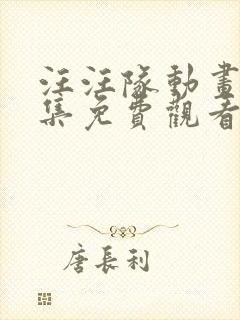 汪汪隊動畫
集免費觀看
唐長利